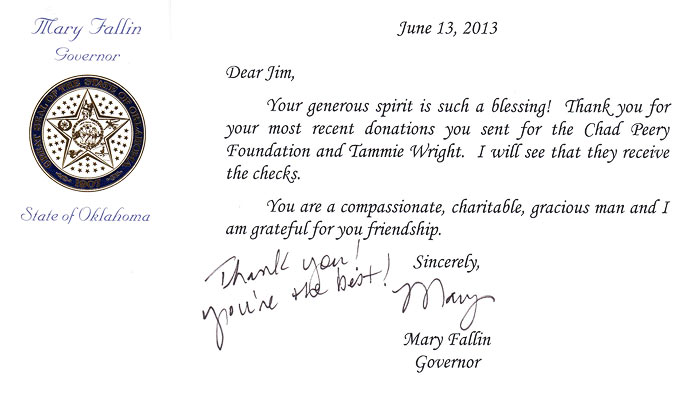 Mary Fallin
Governor
GREAT SEAL OF THE STATE OF OKLAHOMA
1907
State of Oklahoma
June 13, 2013
Dear Jim,
Your generous spirit is such a blessing! Thank you for
your most recent donations you sent for the Chad Peery
Foundation and Tammie Wright. I will see that they receive
the checks.
You are a compassionate, charitable, gracious man and I
am grateful for you friendship.
Thank you!
you're the best!
Sincerely,
Mary
Mary Fallin
Governor